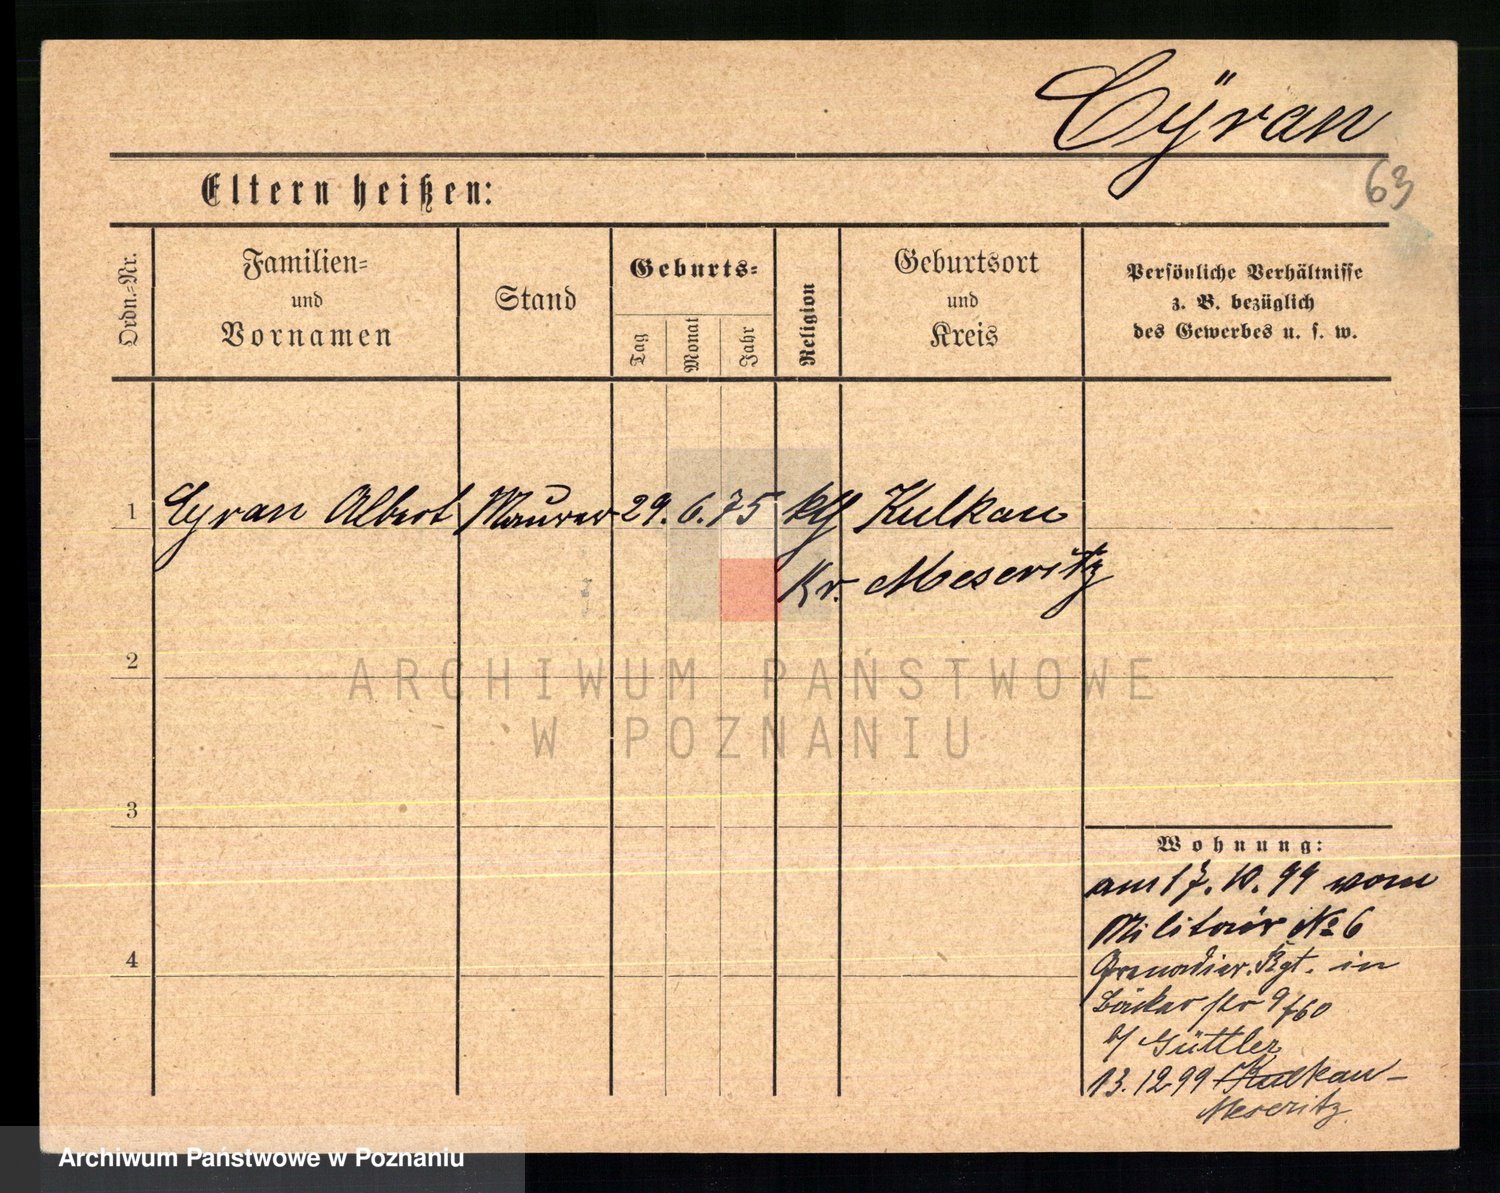 Cÿran
63
Eltern heißen:
Ordn.-Nr.
Familien-
und
Vornamen
Stand
Geburts-
Tag
Monat
Jahr
Religion
Geburtsort
und
Kreis
Persönliche Verhältnisse
z. B. bezüglich
des Gewerbes u. s. w.
1 Cyran Albert Maurer 29. 6. 75 kth Kulkau
Kr. Meseritz
2
ARCHIWUM PAŃSTWOWE
W POZNANIU
3
4
Wohnung:
am 17. 10. 99 vom
Militair No 6
Grenadier. Rgt. in
Bäcker str 9
b/ Güttler
13. 12 99 Kulkau -
Meseritz.
Archiwum Państwowe w Poznaniu